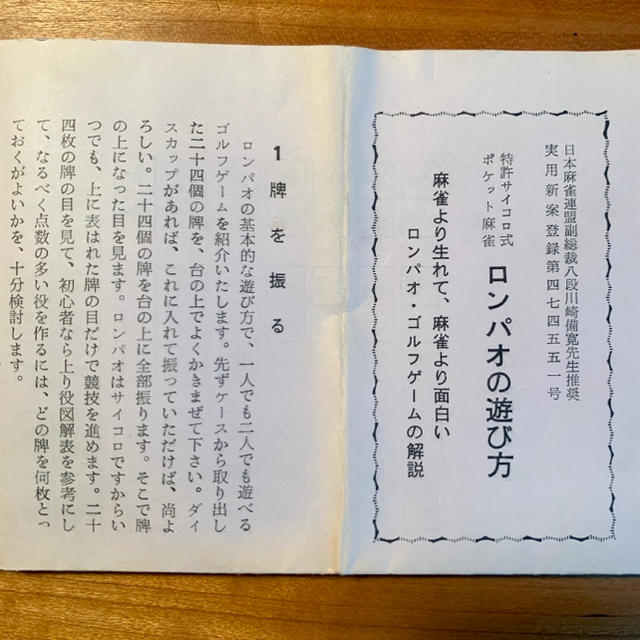 日本麻雀連盟副総裁八段川崎備寛先生推奨
実用新案登録第四七四五五一号
特許サイコロ式
ポケット麻雀
ロンパオの遊び方
麻雀より生れて、麻雀より面白い
ロンパオ・ゴルフゲームの解説
1牌を振る
ロンパオの基本的な遊び方で、一人でも二人でも遊べる
ゴルフゲームを紹介いたします。先ずケースから取り出し
た二十四個の牌を、台の上でよくかきまぜて下さい。ダイ
スカップがあれば、これに入れて振っていただけば、尚よ
ろしい。二十四個の牌を台の上に全部振ります。そこで牌
の上になった目を見ます。ロンパオはサイコロですからい
つでも、上に表はれた牌の目だけで競技を進めます。二十
四枚の牌の目を見て、初心者なら上り役図解表を参考にし
て、なるべく点数の多い役を作るには、どの牌を何枚とっ
ておくがよいかを、十分検討します。